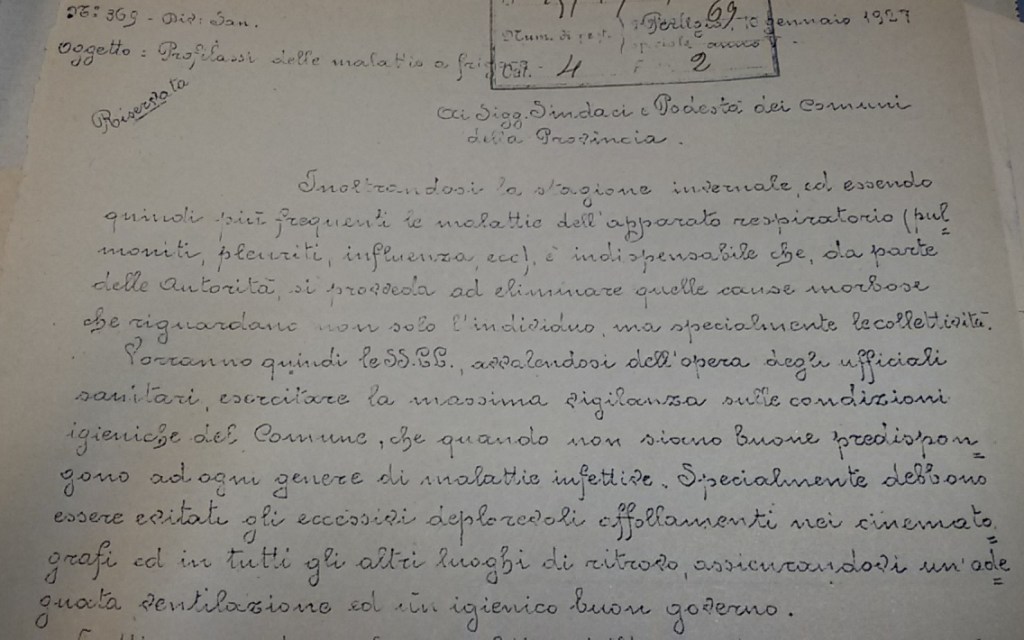 N° 369 - Div: San.
gennaio 1927
Num. di
speciale
Cat. 4 F 2
Oggetto: Profilassi delle malattie a frigore
Riservata
Ai Sigg. Sindaci e Podestà dei Comuni
della Provincia.
Inoltrandosi la stagione invernale, ed essendo
quindi più frequenti le malattie dell'apparato respiratorio (pul
moniti, pleuriti, influenza, ecc), è indispensabile che, da parte
delle Autorità, si provveda ad eliminare quelle cause morbose
che riguardano non solo l'individuo, ma specialmente le collettività.
Vorranno quindi le SS.LL., avvalendosi dell'opera degli ufficiali
sanitari, esercitare la massima vigilanza sulle condizioni
igieniche del Comune, che quando non siano buone predispon
gono ad ogni genere di malattie infettive. Specialmente debbono
essere evitati gli eccessivi deplorevoli affollamenti nei cinemato
grafi ed in tutti gli altri luoghi di ritrovo, assicurandovi un'ade
guata ventilazione ed un igienico buon governo.